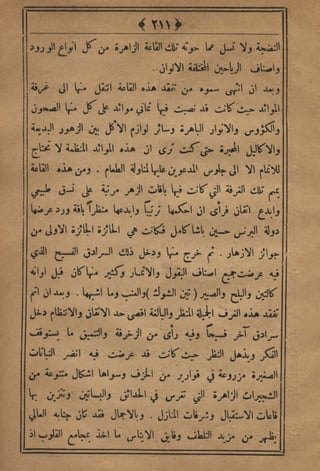 ﴿ ٢١١ ﴾
النضجة ولا تسل عما حوته تلك القاعة الزاهرة من كل انواع الورود
واصناف الرياحين المختلفة الالوان
وبعد ان انتهى سموه من تفقد هذه القاعة انتقل منها الى غرفة
الموائد حيث كانت قد نصبت فيها ثماني موائد على كل منها الصحون
والكؤوس والانوار الباهرة وسائر لوازم الاكل بين الزهور البديعة
والاكاليل المحيرة حتى كنت ترى ان هذه الموائد المنظمة لا تحتاج
للاتمام الا الى جلوس المدعوين عليها لمناولة الطعام . ومن هذه القاعة
يمم تلك الغرفة التي كانت فيها باقات الزهر مرتبة على نسق طبيعي
وابدع اتقان فرأى ان احكمها ترتيباً وابدعها منظراً باقة ورد عرضها
دولة البرنس حسين باشا كامل فكانت هي الحائزة الجائزة الاولى من
جوائز الازهار . ثم خرج منها ودخل ذلك السرادق الفسيح الذي
فيه عرضت جميع اصناف البقول والاثمار وكثير منها كان قبل اوانه
كالتين والبلح والصبير ( تين الشوك ) والعنب وما اشبهها . وبعد ان اتم
تفقد هذه الغرف الجميلة المنظر والبالغة اقصى حد الاتقان والانتظام دخل
سرادق آخر فسيحاً وفيه رأى من الزخرفة والتنميق ما يستوقف
الفكر ويذهل النظر حيث كانت قد عرضت فيه انضر النباتات
الصغيرة مزروعة في قوارير من الخزف وسواها اشكال متنوعة من
الشجيرات الزاهرة التي تغرس في الحدائق والبساتين وتتزين بها
قاعات الاستقبال وشرفات المنازل . وبالاجمال فقد كان جنابه العالي
يظهر من مزيد التلطف وفايق الايناس ما اخذ بمجامع القلوب اذ